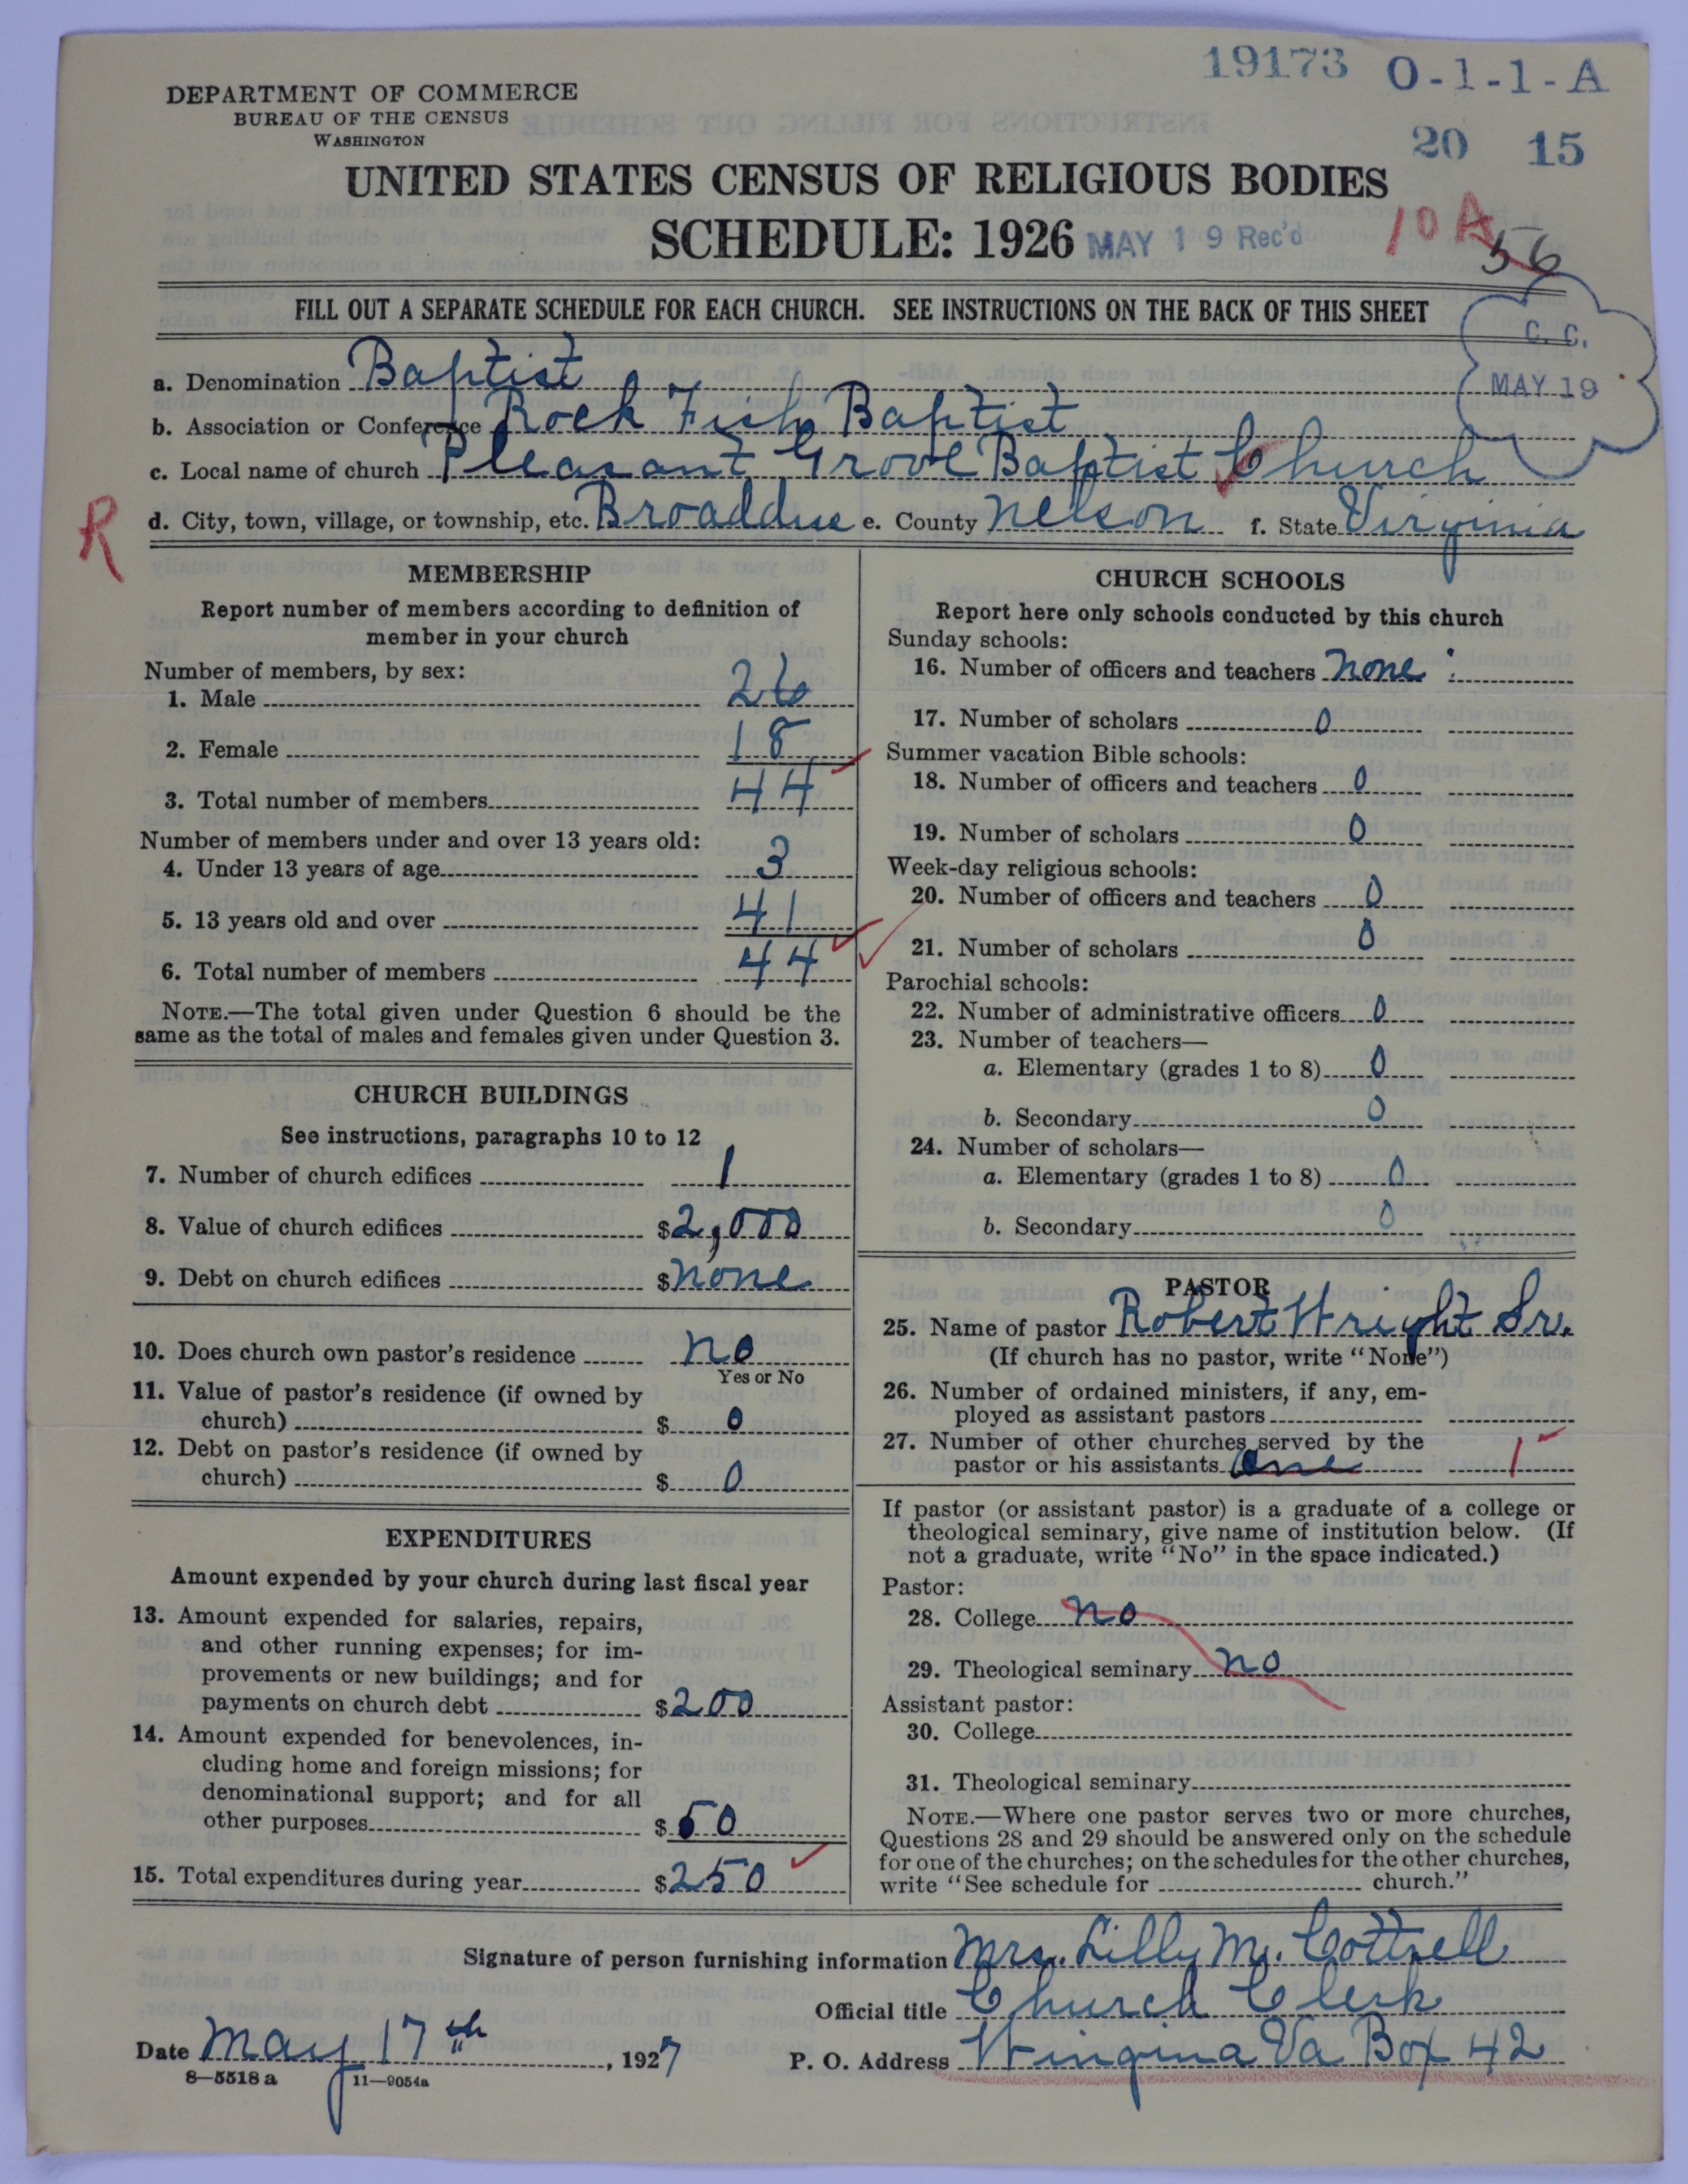 19173 O-1-1-A
DEPARTMENT OF COMMERCE
BUREAU OF THE CENSUS
WASHINGTON
20 15
UNITED STATES CENSUS OF RELIGIOUS BODIES
SCHEDULE: 1926 MAY 19 Rec'd 10A 56
FILL OUT A SEPARATE SCHEDULE FOR EACH CHURCH. SEE INSTRUCTIONS ON THE BACK OF THIS SHEET
C. C.
MAY 19
a. Denomination Baptist
b. Association or Conference Rock Fish Baptist
c. Local name of church Pleasant Grove Baptist Church
R
d. City, town, village, or township, etc. Broaddus e. County Nelson f. State Virginia
MEMBERSHIP
Report number of members according to definition of
member in your church
Number of members, by sex:
1. Male 26
2. Female 18
3. Total number of members 44
Number of members under and over 13 years old:
4. Under 13 years of age 3
5. 13 years old and over 41
6. Total number of members 44
NOTE.—The total given under Question 6 should be the
same as the total of males and females given under Question 3.
CHURCH BUILDINGS
See instructions, paragraphs 10 to 12
7. Number of church edifices 1
8. Value of church edifices $2,000
9. Debt on church edifices $none
10. Does church own pastor's residence no
Yes or No
11. Value of pastor's residence (if owned by
church) $ 0
12. Debt on pastor's residence (if owned by
church) $ 0
EXPENDITURES
Amount expended by your church during last fiscal year
13. Amount expended for salaries, repairs,
and other running expenses; for im-
provements or new buildings; and for
payments on church debt $200
14. Amount expended for benevolences, in-
cluding home and foreign missions; for
denominational support; and for all
other purposes $50
15. Total expenditures during year $250
CHURCH SCHOOLS
Report here only schools conducted by this church
Sunday schools:
16. Number of officers and teachers none
17. Number of scholars 0
Summer vacation Bible schools:
18. Number of officers and teachers 0
19. Number of scholars 0
Week-day religious schools:
20. Number of officers and teachers 0
21. Number of scholars 0
Parochial schools:
22. Number of administrative officers 0
23. Number of teachers—
a. Elementary (grades 1 to 8) 0
b. Secondary 0
24. Number of scholars—
a. Elementary (grades 1 to 8) 0
b. Secondary 0
PASTOR
25. Name of pastor Robert Wright Sr.
(If church has no pastor, write "None")
26. Number of ordained ministers, if any, em-
ployed as assistant pastors
27. Number of other churches served by the
pastor or his assistants One 1
If pastor (or assistant pastor) is a graduate of a college or
theological seminary, give name of institution below. (If
not a graduate, write "No" in the space indicated.)
Pastor:
28. College no
29. Theological seminary no
Assistant pastor:
30. College
31. Theological seminary
NOTE.—Where one pastor serves two or more churches,
Questions 28 and 29 should be answered only on the schedule
for one of the churches; on the schedules for the other churches,
write "See schedule for church."
Signature of person furnishing information Mrs. Lilly M. Cottrell
Official title Church Clerk
Date May 17th, 1927 P. O. Address Wingina Va Box 42
8—5518 a 11—9054a